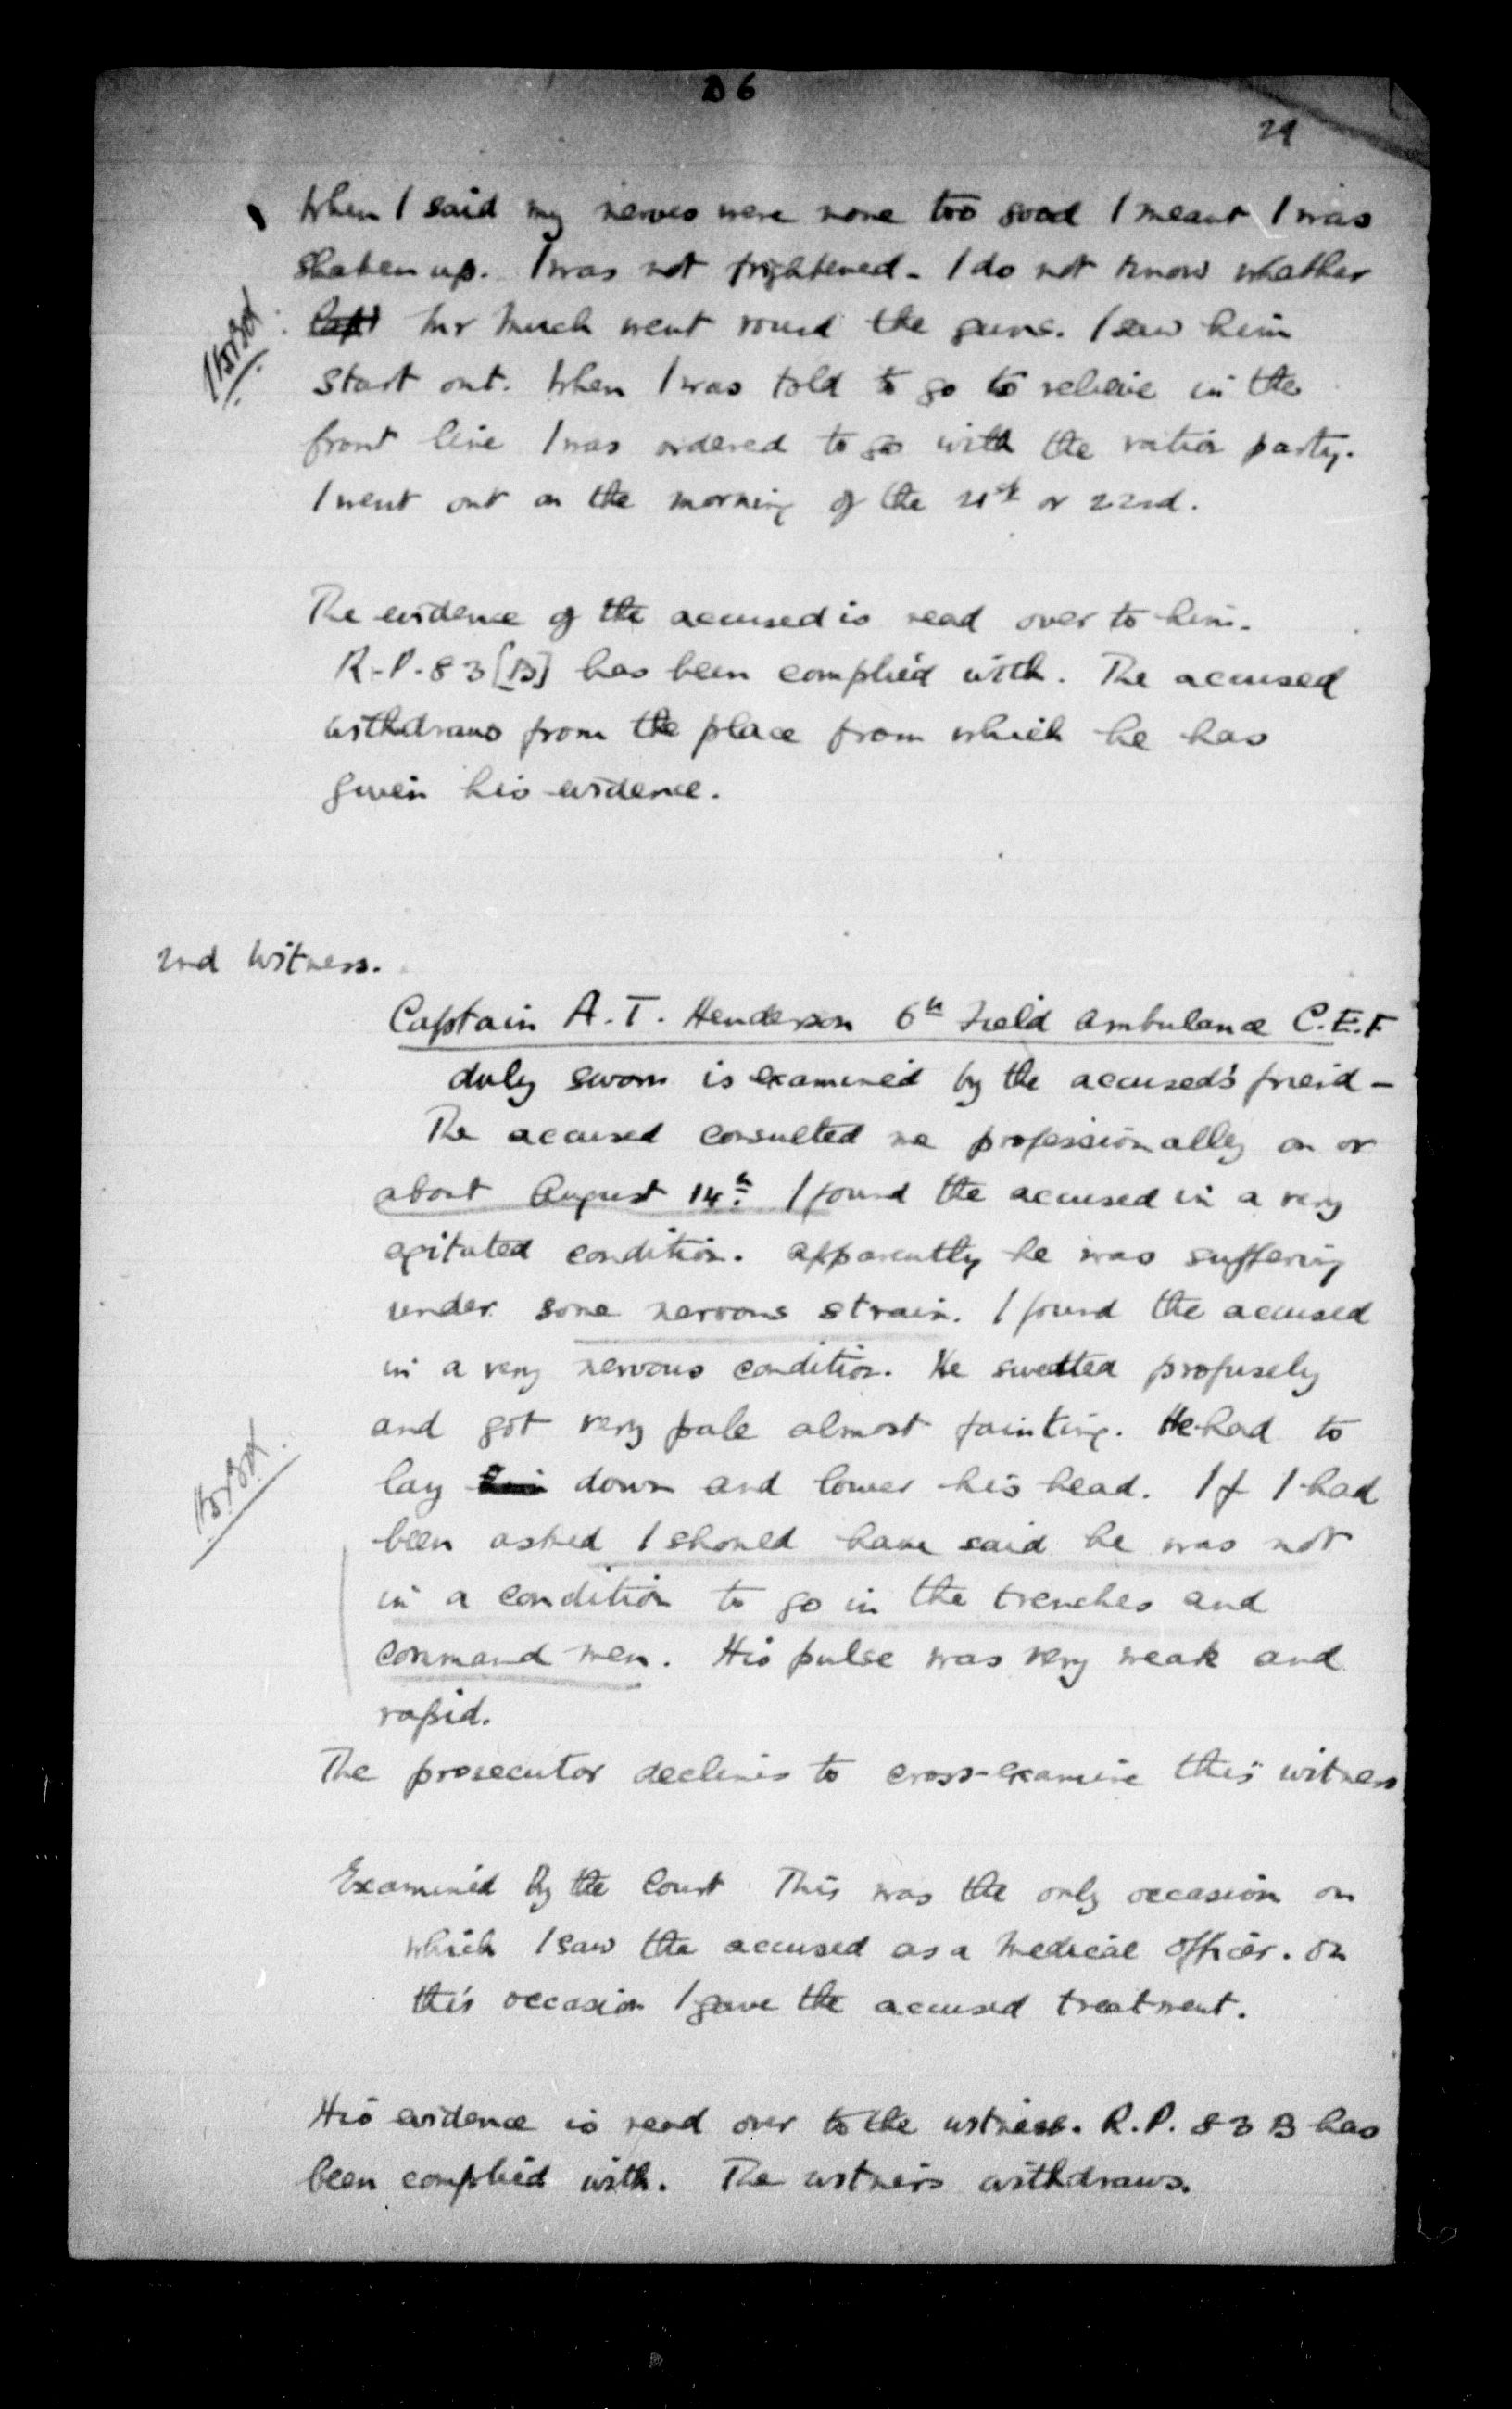 D 6
29
When I said my nerves were none too good I meant I was
shaken up. I was not frightened - I do not know whether
Mr Much went round the guns. I saw him
start out. When I was told to go to relieve in the
front line I was ordered to go with the ration party.
I went out on the morning of the 21st or 22nd.
The evidence of the accused is read over to him.
R.P. 83 [B] has been complied with. The accused
withdraws from the place from which he has
given his evidence.
2nd Witness.
Captain A. T. Henderson 6th Field Ambulance C.E.F
duly sworn is examined by the accused's friend -
The accused consulted me professionally on or
about August 14th. I found the accused in a very
agitated condition. Apparently he was suffering
under some nervous strain. I found the accused
in a very nervous condition. He swetted profusely
and got very pale almost fainting. He had to
lay down and lower his head. If I had
been asked I should have said he was not
in a condition to go in the trenches and
command men. His pulse was very weak and
rapid.
The prosecutor declines to cross-examine this witness
Examined by the Court This was the only occasion on
which I saw the accused as a Medical Officer. On
this occasion I gave the accused treatment.
His evidence is read over to the witness. R.P. 83 B has
been complied with. The witness withdraws.